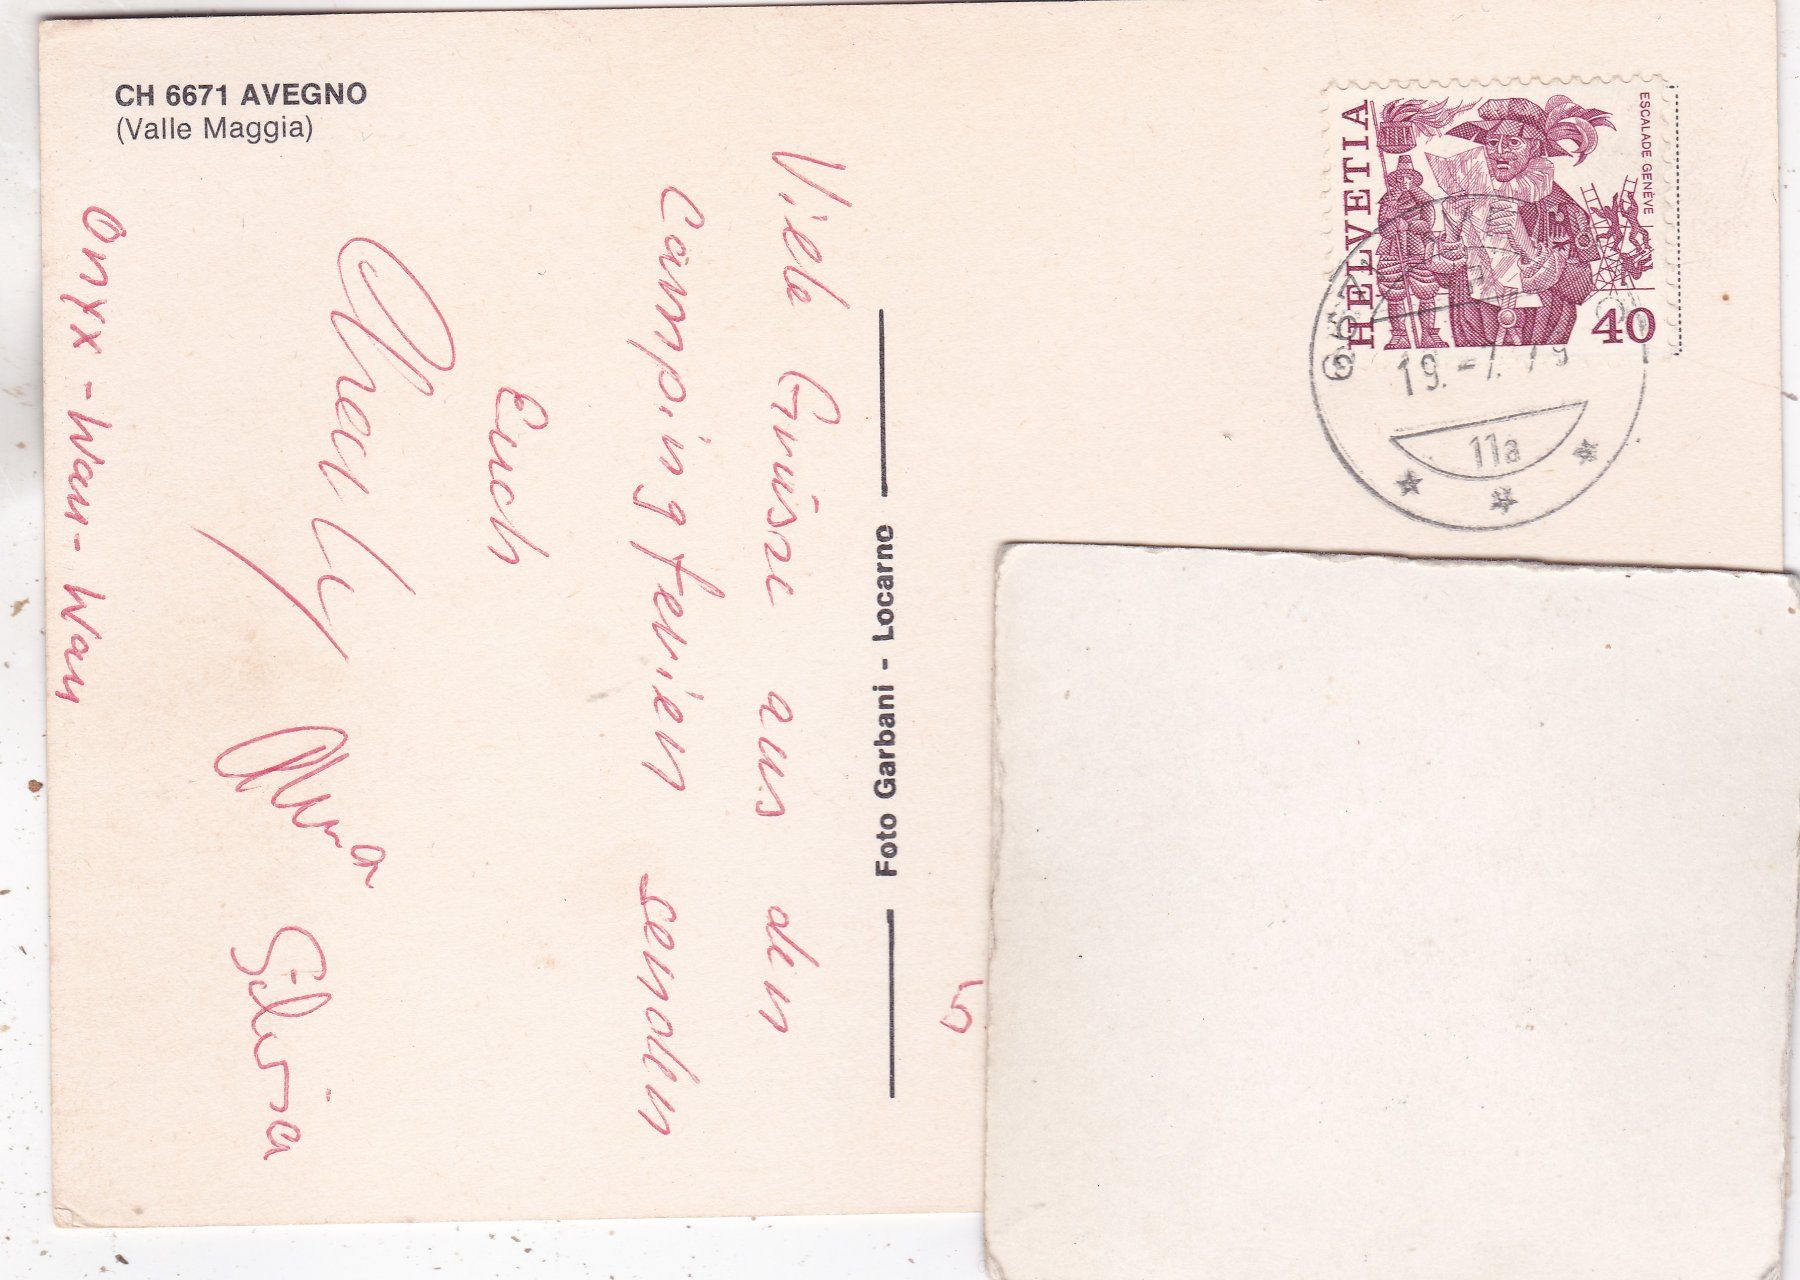 CH 6671 AVEGNO
(Valle Maggia)
Viele Grüsse aus den
Campingferien senden
Euch
Silvia
Onyx - Wau - Wau
Foto Garbani - Locarno
5
HELVETIA
ESCALADE GENÈVE
40
19.-7.79
11a